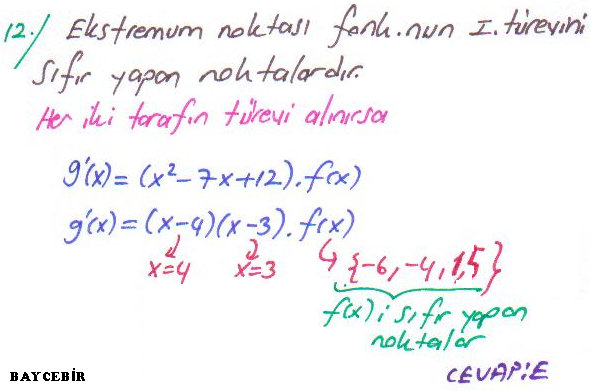 12./ Ekstremum noktası fonk.nun I. türevini
sıfır yapan noktalardır.
Her iki tarafın türevi alınırsa
g'(x) = (x²-7x+12).f(x)
g'(x) = (x-4)(x-3).f(x)
x=4 x=3 ↳ {-6, -4, 1, 5}
f(x)i sıfır yapan
noktalar
CEVAP:E
BAYCEBİR